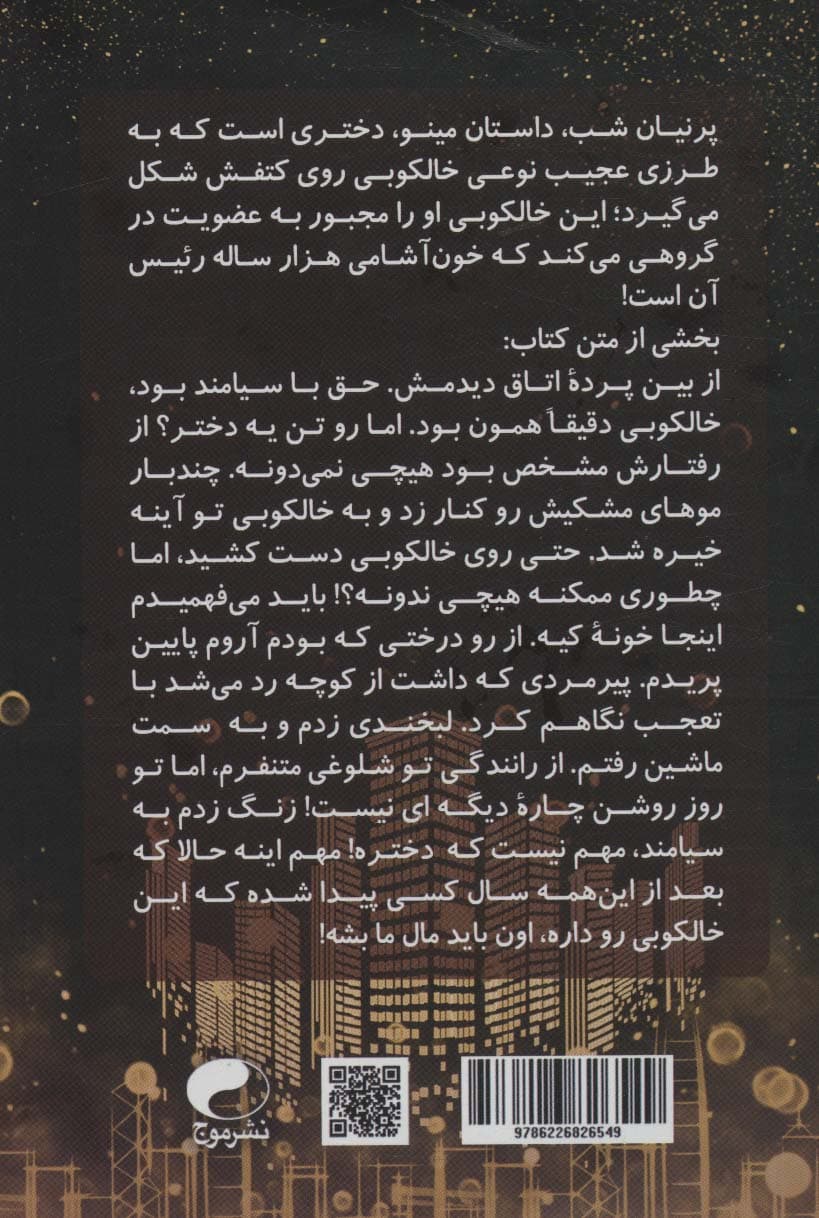 پرنیان شب، داستان مینو، دختری است که به
طرزی عجیب نوعی خالکوبی روی کتفش شکل
می‌گیرد؛ این خالکوبی او را مجبور به عضویت در
گروهی می‌کند که خون‌آشامی هزار ساله رئیس
آن است!
بخشی از متن کتاب:
از بین پردهٔ اتاق دیدمش. حق با سیامند بود،
خالکوبی دقیقاً همون بود. اما رو تن یه دختر؟ از
رفتارش مشخص بود هیچی نمی‌دونه. چندبار
موهای مشکیش رو کنار زد و به خالکوبی تو آینه
خیره شد. حتی روی خالکوبی دست کشید، اما
چطوری ممکنه هیچی ندونه؟! باید می‌فهمیدم
اینجا خونهٔ کیه. از رو درختی که بودم آروم پایین
پریدم. پیرمردی که داشت از کوچه رد می‌شد با
تعجب نگاهم کرد. لبخندی زدم و به سمت
ماشین رفتم. از رانندگی تو شلوغی متنفرم، اما تو
روز روشن چارهٔ دیگه ای نیست! زنگ زدم به
سیامند، مهم نیست که دختره! مهم اینه حالا که
بعد از این‌همه سال کسی پیدا شده که این
خالکوبی رو داره، اون باید مال ما بشه!
نشرموج
9786226826549